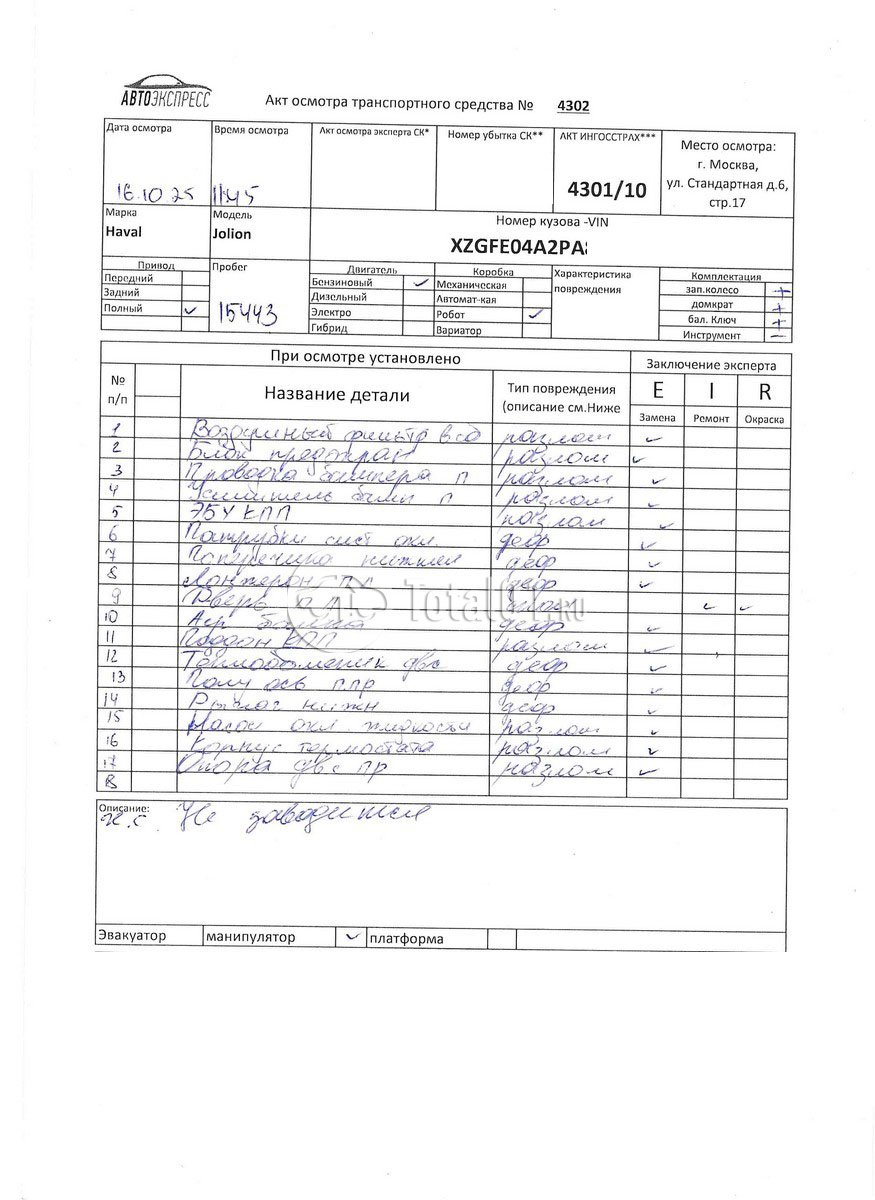 АВТОЭКСПРЕСС
Акт осмотра транспортного средства № 4302
Дата осмотра Время осмотра Акт осмотра эксперта СК* Номер убытка СК** АКТ ИНГОССТРАХ*** Место осмотра:
г. Москва,
16.10 25 11:45 4301/10 ул. Стандартная д.6,
стр.17
Марка Модель Номер кузова -VIN
Haval Jolion XZGFE04A2PA
Привод Пробег Двигатель Коробка Характеристика Комплектация
Передний Бензиновый ✓ Механическая повреждения зап.колесо +
Задний Дизельный Автомат-кая домкрат +
Полный ✓ 15443 Электро Робот ✓ бал. Ключ +
Гибрид Вариатор Инструмент –
При осмотре установлено Заключение эксперта
№ п/п Название детали Тип повреждения (описание см.Ниже E I R
Замена Ремонт Окраска
1 Воздушный фильтр разлом ✓
2 Блок предохран разлом ✓
3 Проводка бампера п разлом ✓
4 Усилитель бамп п разлом ✓
5 ЭБУ КПП разлом ✓
6 Патрубки сист охл. деф ✓
7 Поперечина нижняя деф ✓
8 Лонжерон деф ✓
9 Дверь ✓ ✓
10 деф ✓
11 Поддон КПП разлом ✓
12 Теплообменник двс деф ✓
13 ппр деф ✓
14 Рычаг нижн деф ✓
15 Насос охл жидкости разлом ✓
16 Корпус термостата разлом ✓
17 Опора двс пр разлом ✓
18
Описание:
Не заводится
Эвакуатор манипулятор ✓ платформа
Total01.RU